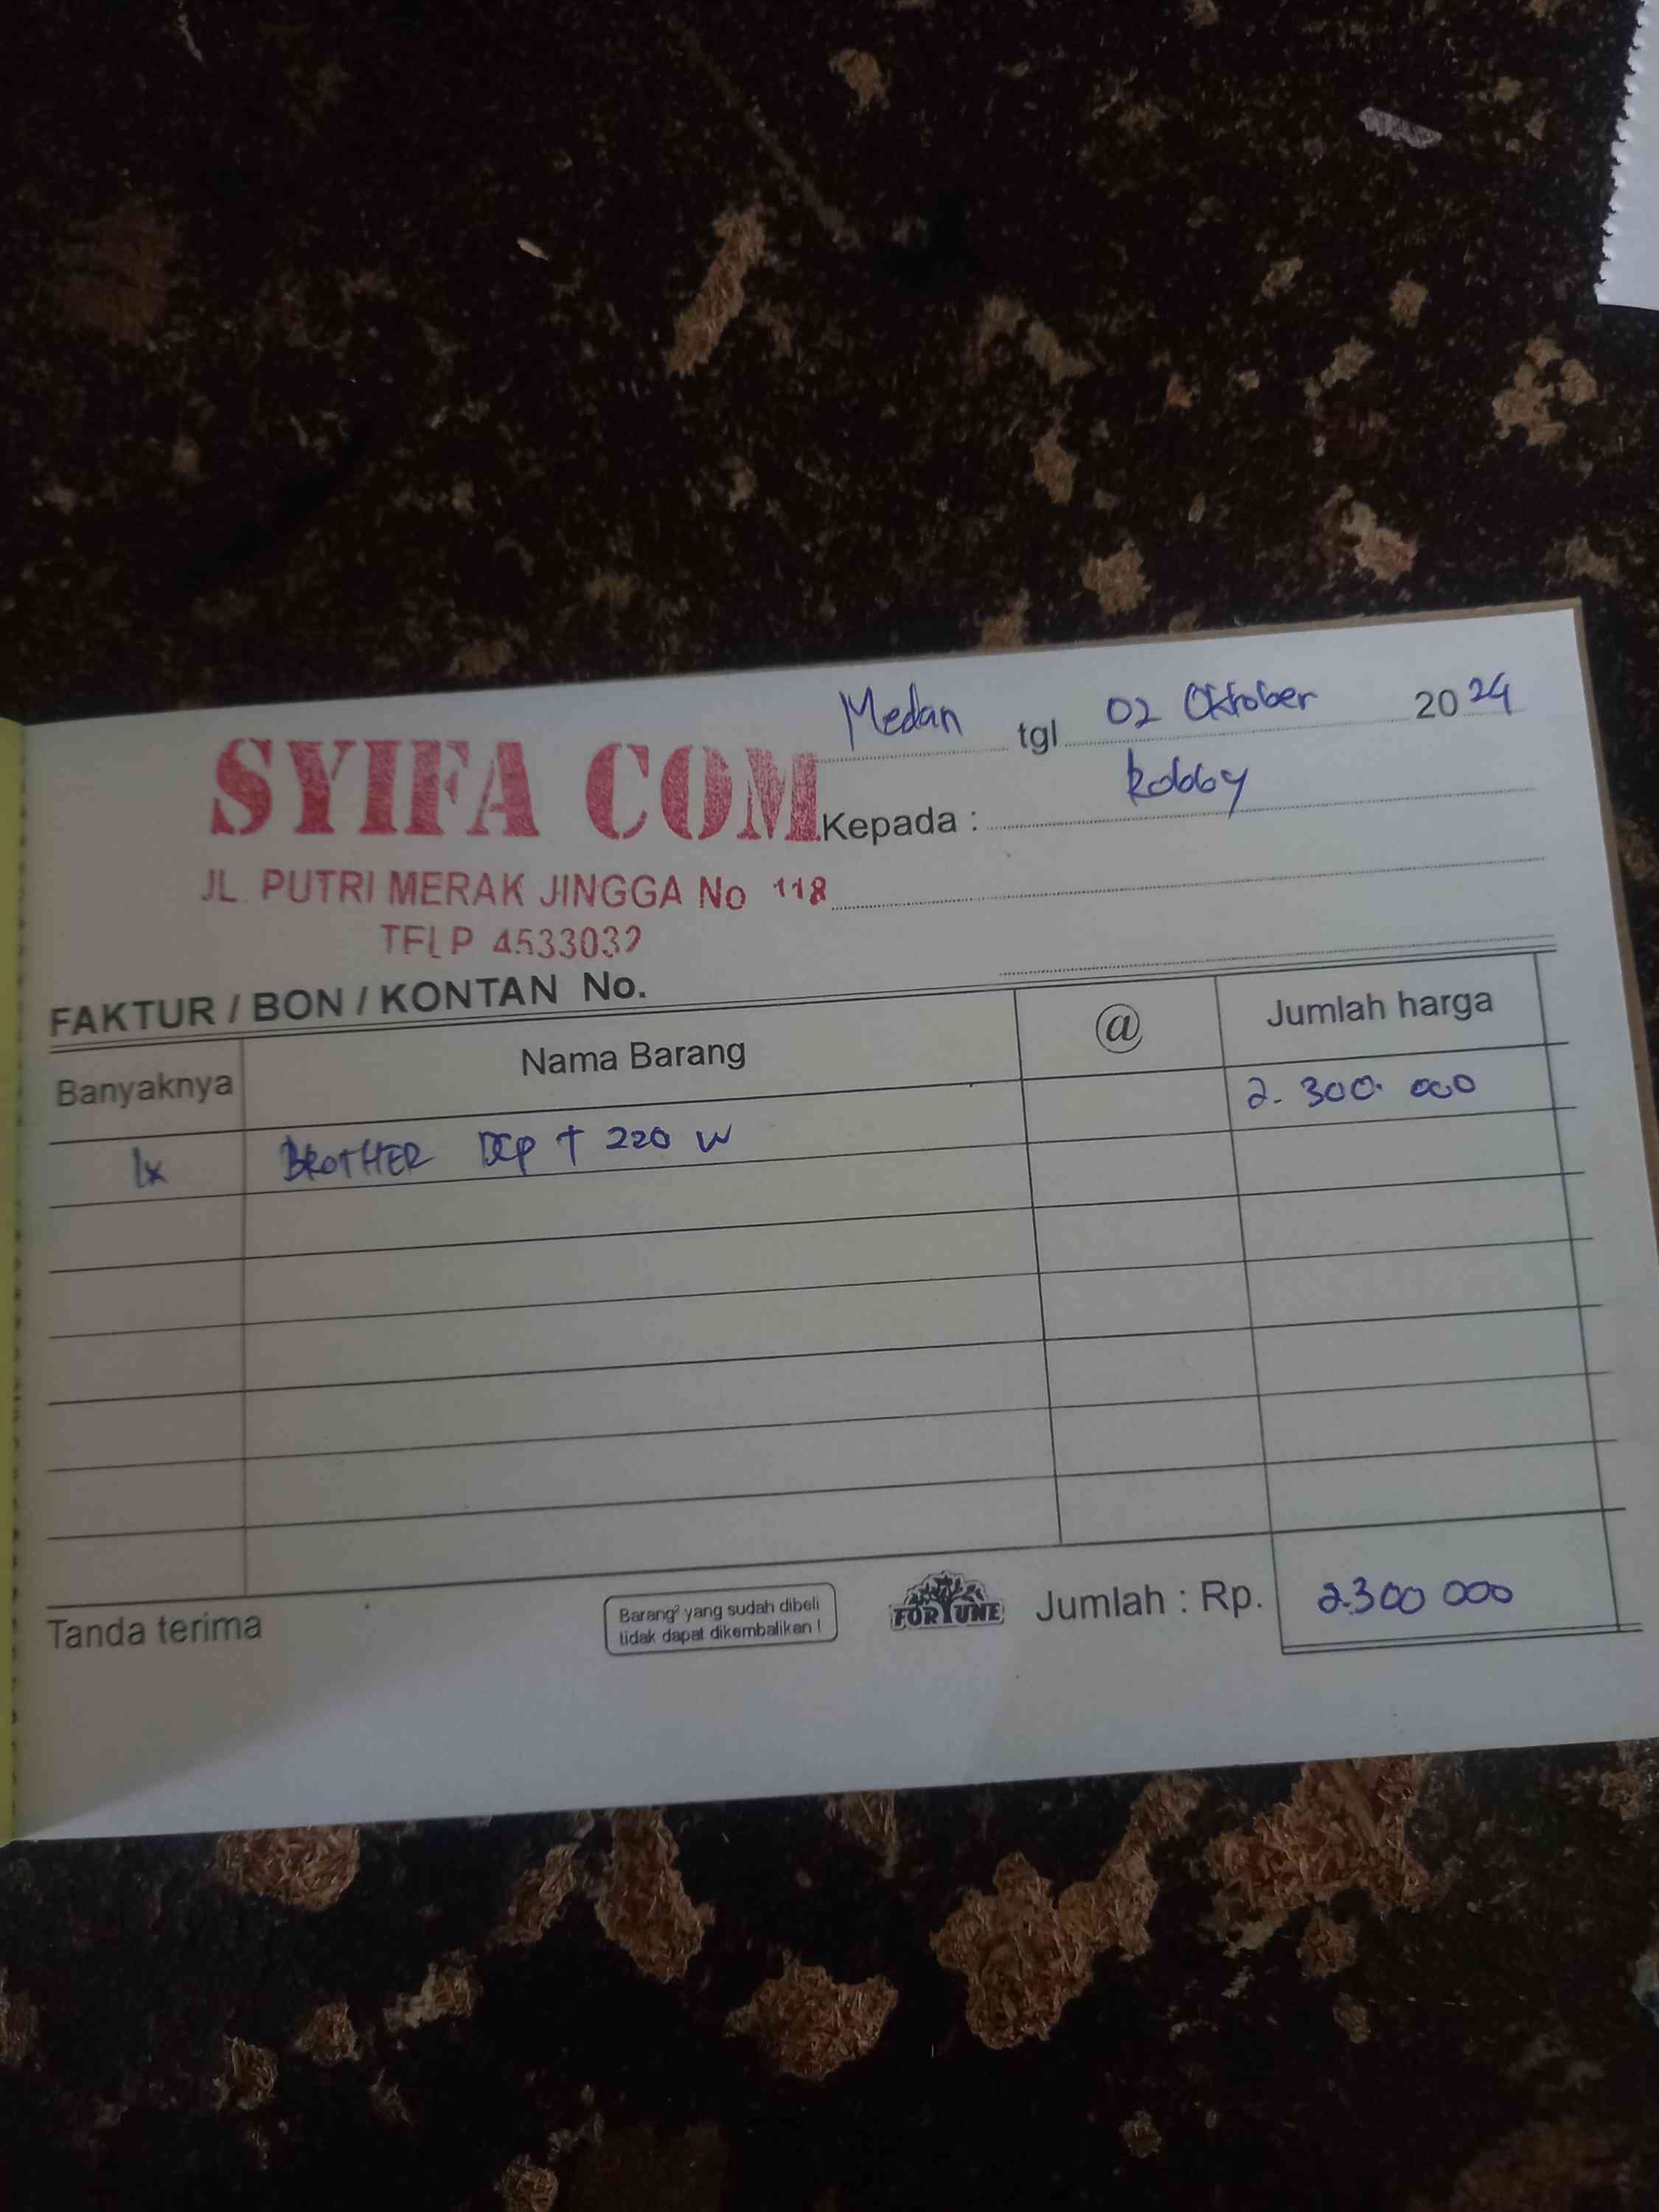 Medan tgl 02 Oktober 2024
SYIFA COM
Kepada : Robby
JL. PUTRI MERAK JINGGA No 118
TELP 4533032
FAKTUR / BON / KONTAN No.
Banyaknya Nama Barang @ Jumlah harga
1x BROTHER DCP T 220 W 2.300.000
Tanda terima
Barang² yang sudah dibeli
tidak dapat dikembalikan !
FORTUNE
Jumlah : Rp. 2.300 000